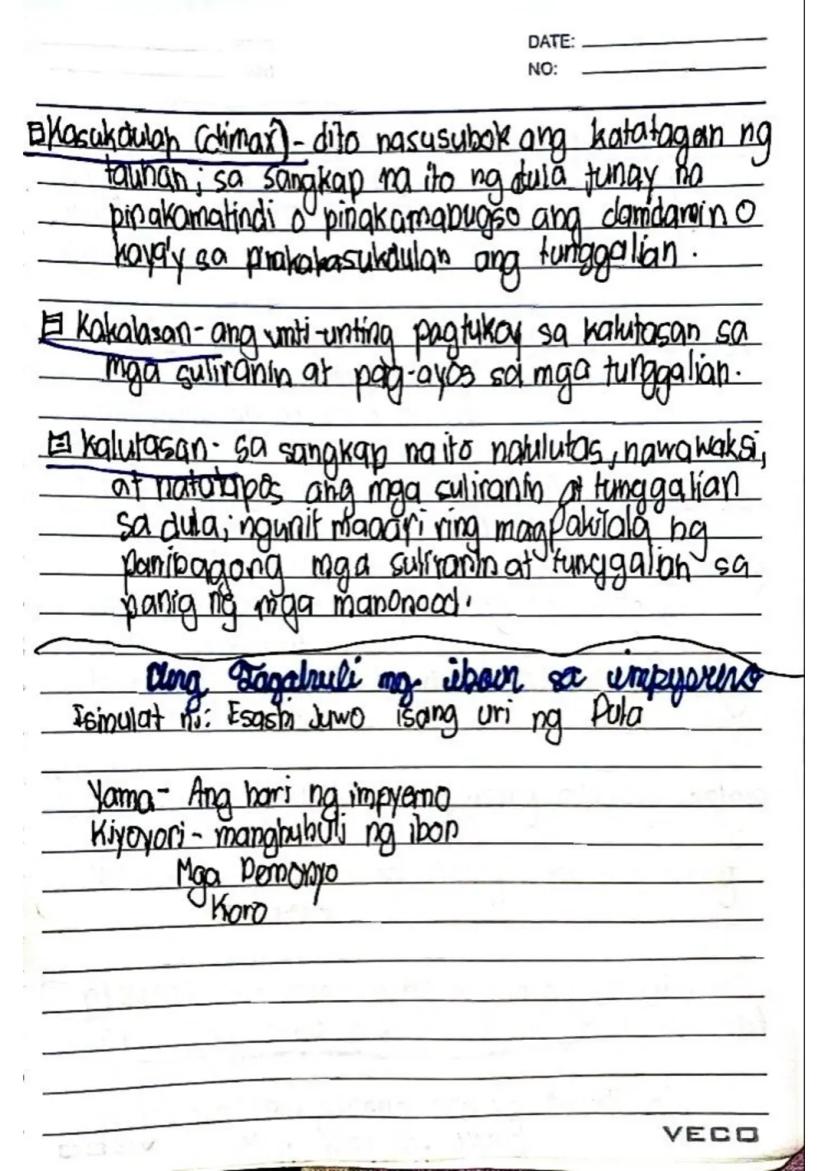 DATE:
NO:
Kasukdulan (climax) - dito nasusubok ang katatagan ng
tauhan; sa sangkap na ito ng dula tunay na
pinakamatindi o pinakamabugso ang damdamin o
kaya'y sa pinakakasukdulan ang tunggalian.
Kakalasan - ang unti-unting pagtukoy sa kalutasan sa
mga suliranin at pag-ayos sa mga tunggalian.
Kalutasan - sa sangkap na ito nalulutas, nawawaksi,
at natatapos ang mga suliranin at tunggalian
sa dula; ngunit maaari ring magpakilala ng
panibagong mga suliranin at tunggalian sa
panig ng mga manonood.
Ang Tagahuli ng ibon sa impyerno
Isinulat ni: Esashi Juwo isang uri ng Dula
Yama - Ang hari ng impyerno
Kiyoyori - manghuhuli ng ibon
Mga Demonyo
Koro
VECO